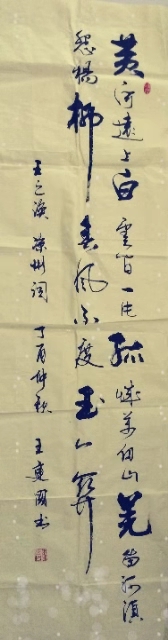 黄河遠上白雲间一片孤城萬仞山羌笛何須
怨楊柳春風不度玉门關
王之渙 涼州词 丁酉仲秋 王國书